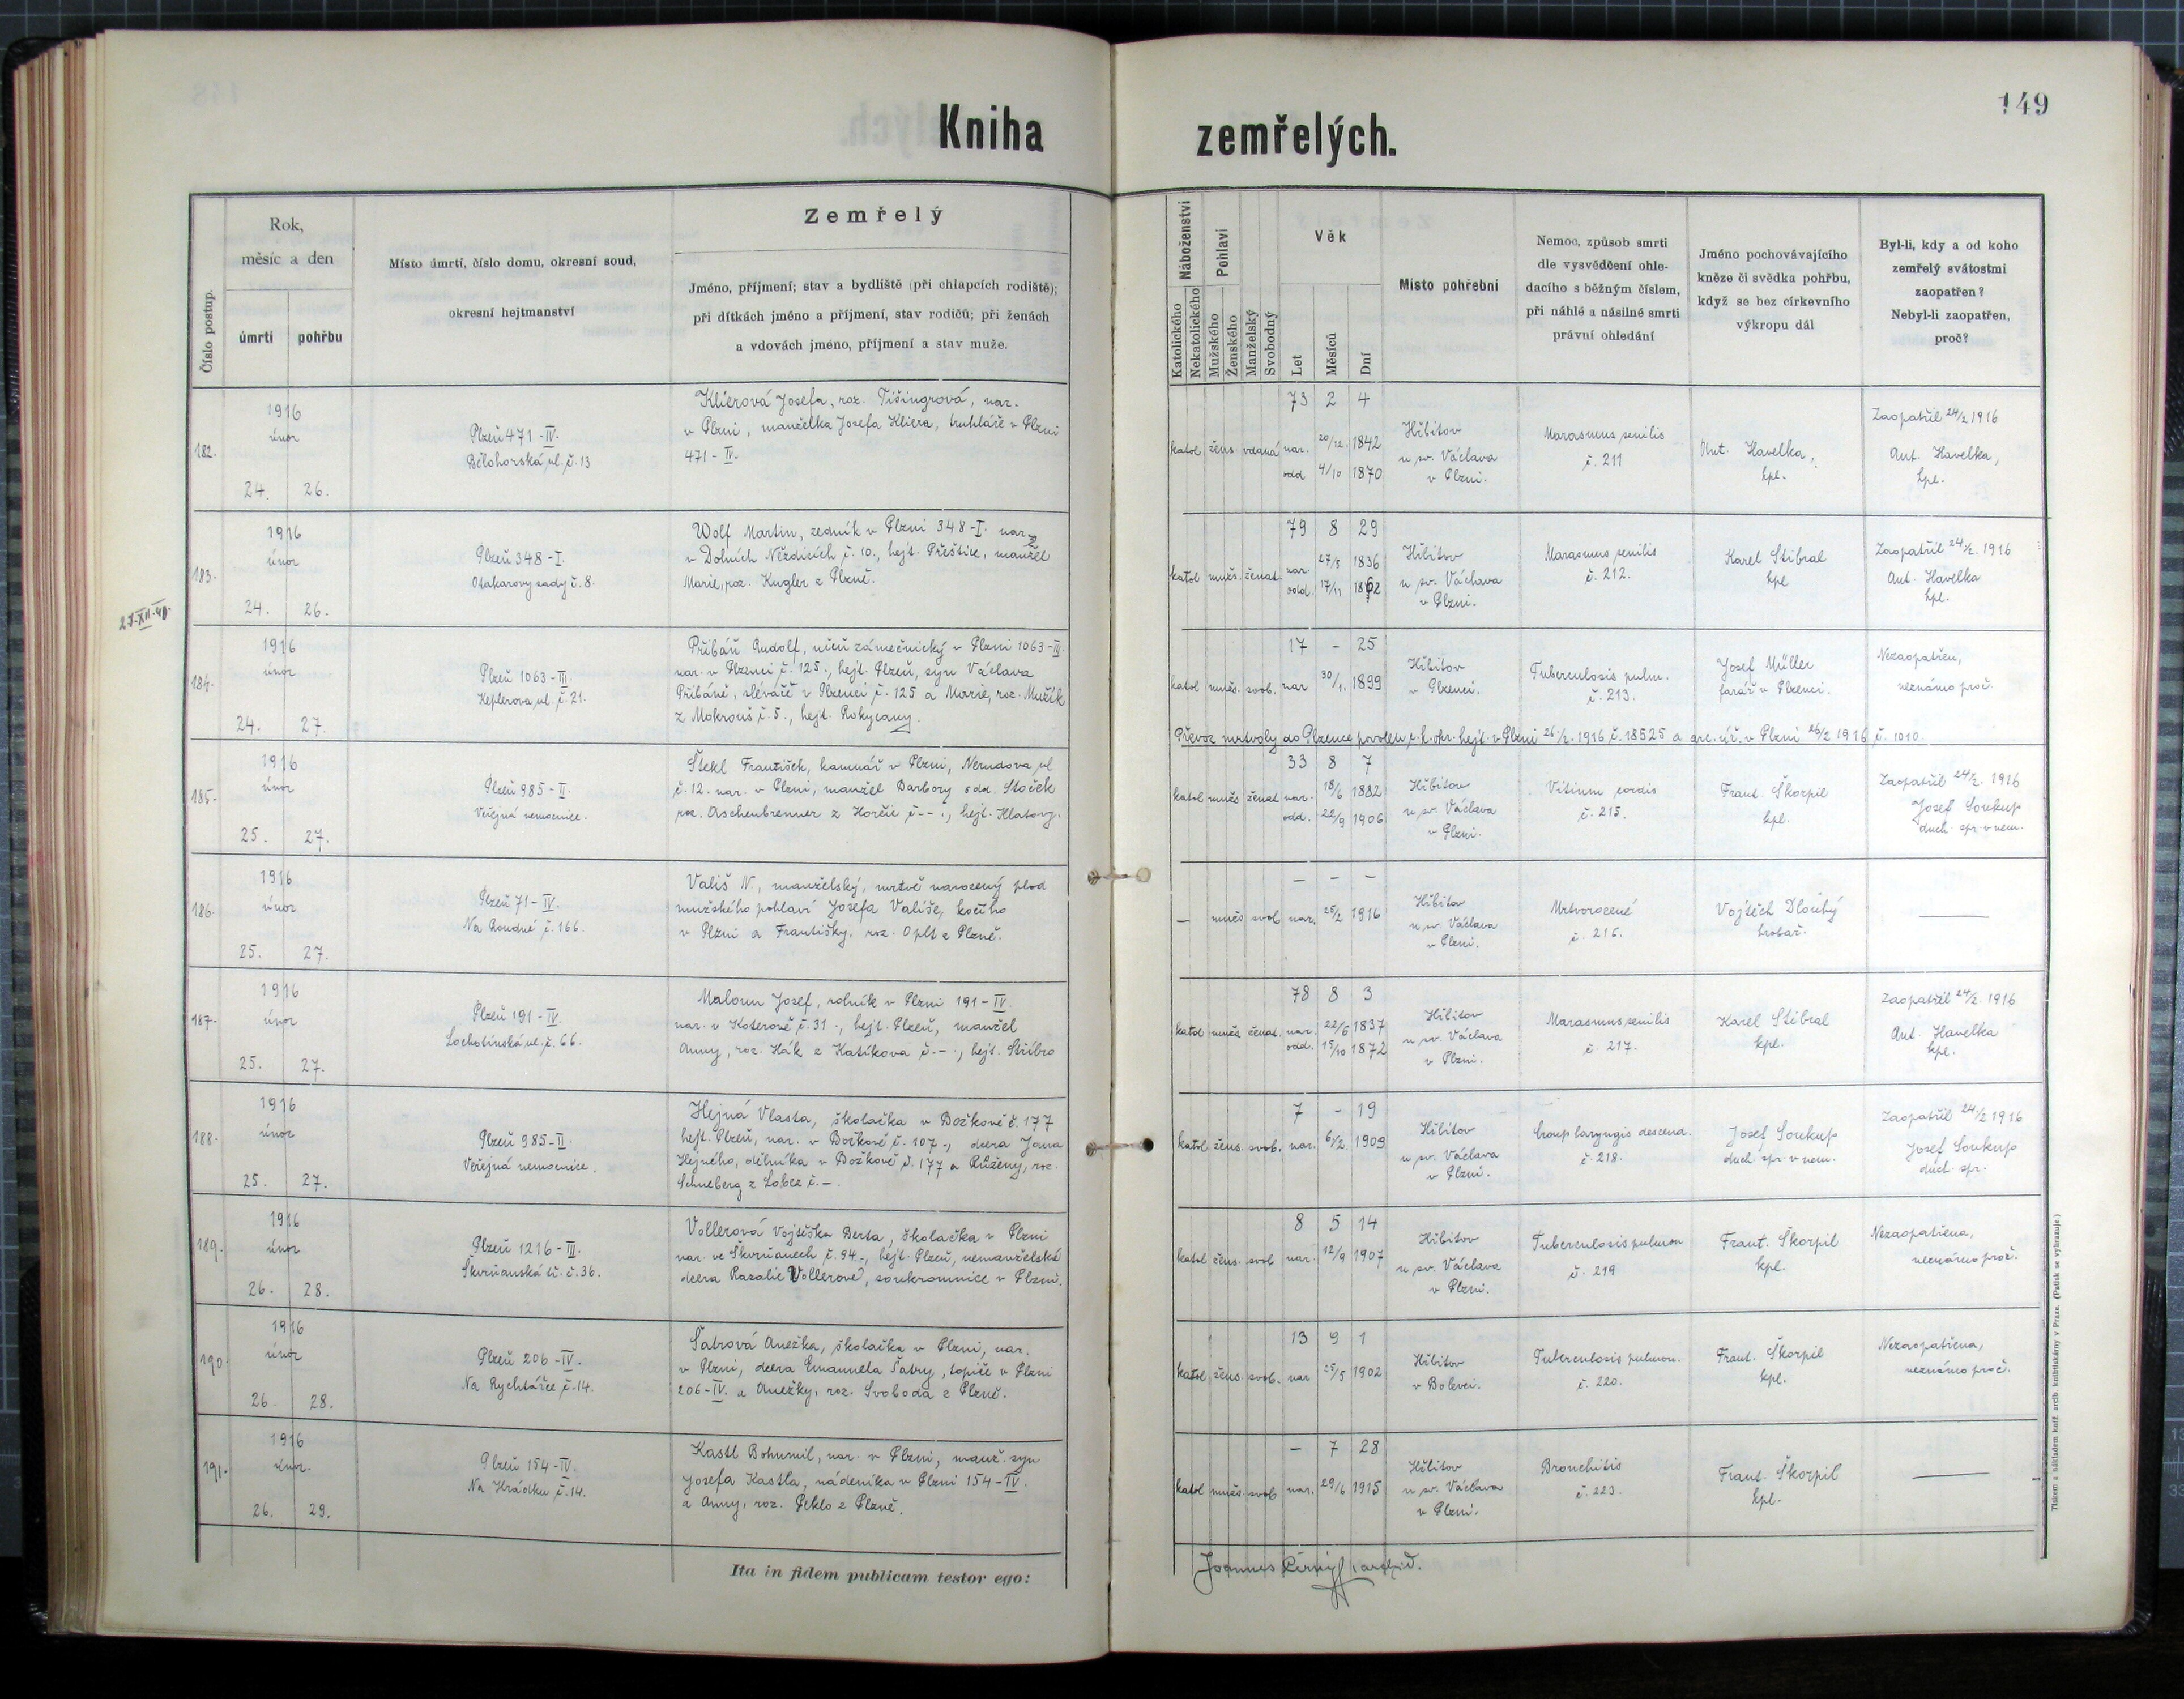 149
Kniha zemřelých.
Číslo postup.
Rok,
měsíc a den
úmrtí
pohřbu
Místo úmrtí, číslo domu, okresní soud,
okresní hejtmanství
Zemřelý
Jméno, příjmení; stav a bydliště (při chlapcích rodiště);
při dítkách jméno a příjmení, stav rodičů; při ženách
a vdovách jméno, příjmení a stav muže.
Náboženství
Katolického
Nekatolického
Pohlaví
Mužského
Ženského
Manželský
Svobodný
Věk
Let
Měsíců
Dní
Místo pohřební
Nemoc, způsob smrti
dle vysvědčení ohle-
dacího s běžným číslem,
při náhlé a násilné smrti
právní ohledání
Jméno pochovávajícího
kněze či svědka pohřbu,
když se bez církevního
výkropu dál
Byl-li, kdy a od koho
zemřelý svátostmi
zaopatřen?
Nebyl-li zaopatřen,
proč?
182.
1916
únor
24. 26.
Plzeň 471-IV.
Bělohorská ul. č. 13
Klierová Josefa, roz. Tišingrová, nar.
v Plzni, manželka Josefa Kliera, truhláře v Plzni
471-IV.
katol žens. vdaná
73 2 4
nar. 20/12. 1842
odd 4/10 1870
Hřbitov
u sv. Václava
v Plzni.
Marasmus senilis
č. 211
Ant. Havelka,
kpl.
Zaopatřil 24/2 1916
Ant. Havelka,
kpl.
183.
1916
únor
24. 26.
Plzeň 348-I.
Otakarovy sady č. 8.
Wolf Martin, zedník v Plzni 348-I. nar.
v Dolních Nezdicích č. 10., hejt. Přeštice, manžel
Marie, roz. Kugler z Plzně.
katol mužs. ženat.
79 8 29
nar 27/5 1836
odd. 17/11 1862
Hřbitov
u sv. Václava
v Plzni.
Marasmus senilis
č. 212.
Karel Stibral
kpl
Zaopatřil 24/2. 1916
Ant. Havelka
kpl.
27-XII-40.
184.
1916
únor
24. 27.
Plzeň 1063-III.
Keplerova ul. č. 21.
Přibáň Rudolf, učeň zámečnický v Plzni 1063-III.
nar. v Plzenci č. 125., hejt. Plzeň, syn Václava
Přibáně, sléváče v Plzenci č. 125 a Marie, roz. Mužík
z Mokrouš č. 5., hejt. Rokycany.
katol mužs. svob.
17 - 25
nar 30/1. 1899
Hřbitov
v Plzenci.
Tuberculosis pulm.
č. 213.
Josef Müller
farář v Plzenci.
Nezaopatřen,
neznámo proč.
Převoz mrtvoly do Plzence povolen c. k. okr. hejt. v Plzni 26/2. 1916 č. 18525 a arc. úř. v Plzni 26/2 1916 č. 1010.
185.
1916
únor
25. 27.
Plzeň 985-II.
Veřejná nemocnice.
Štekl František, kamnář v Plzni, Nerudova ul
č. 12. nar. v Plzni, manžel Barbory odd. Stoček
roz. Aschenbrenner z Horčic č --., hejt. Klatovy.
katol mužs ženat
33 8 7
nar. 18/6 1882
odd. 22/9 1906
Hřbitov
u sv. Václava
v Plzni.
Vitium cordis
č. 215.
Frant. Škorpil
kpl.
Zaopatřil 24/2. 1916
Josef Soukup
duch. spr. v nem.
186.
1916
únor
25. 27.
Plzeň 71-IV.
Na Roudné č. 166.
Vališ N., manželský, mrtvě narozený plod
mužského pohlaví Josefa Vališe, kočího
v Plzni a Františky, roz. Oplt z Plzně.
— mužs svob
- - -
nar. 25/2 1916
Hřbitov
u sv. Václava
v Plzni.
Mrtvorozené
č. 216.
Vojtěch Dlouhý
hrobař.
187.
1916
únor
25. 27.
Plzeň 191-IV.
Lochotínská ul. č. 66.
Maloun Josef, rolník v Plzni 191-IV.
nar. v Koterově č. 31., hejt. Plzeň, manžel
Anny, roz. Hák z Katíkova č. -., hejt. Stříbro
katol mužs. ženat.
78 8 3
nar. 22/6 1837
odd. 15/10 1872
Hřbitov
u sv. Václava
v Plzni.
Marasmus senilis
č. 217.
Karel Stibral
kpl.
Zaopatřil 24/2. 1916
Ant. Havelka
kpl.
188.
1916
únor
25. 27.
Plzeň 985-II.
Veřejná nemocnice.
Hejná Vlasta, školačka v Božkově č. 177
hejt. Plzeň, nar. v Božkově č. 107., dcera Jana
Hejného, dělníka v Božkově č. 177 a Růženy, roz.
Schneberg z Lobez č. -.
katol žens. svob.
7 - 19
nar. 6/2. 1909
Hřbitov
u sv. Václava
v Plzni.
Croup laryngis descend.
č. 218.
Josef Soukup
duch. spr. v nem.
Zaopatřil 24/2 1916
Josef Soukup
duch. spr.
189.
1916
únor
26. 28.
Plzeň 1216-III.
Škvrňanská tř. č. 36.
Vollerová Vojtěška Berta, školačka v Plzni
nar. ve Škvrňanech č. 94., hejt. Plzeň, nemanželská
dcera Rozalie Vollerové, soukromnice v Plzni.
katol žens. svob
8 5 14
nar. 12/9 1907
Hřbitov
u sv. Václava
v Plzni.
Tuberculosis pulmon
č. 219
Frant. Škorpil
kpl.
Nezaopatřena,
neznámo proč.
190.
1916
únor
26. 28.
Plzeň 206-IV.
Na Rychtářce č. 14.
Šatrová Anežka, školačka v Plzni, nar.
v Plzni, dcera Emanuela Šatry, topiče v Plzni
206-IV. a Anežky, roz. Svoboda z Plzně.
katol žens. svob.
13 9 1
nar 25/5 1902
Hřbitov
v Bolevci.
Tuberculosis pulmon.
č. 220.
Frant. Škorpil
kpl.
Nezaopatřena,
neznámo proč.
191.
1916
únor.
26. 29.
Plzeň 154-IV.
Na Hrádku č. 14.
Kastl Bohumil, nar. v Plzni, manž. syn
Josefa Kastla, nádeníka v Plzni 154-IV.
a Anny, roz. Peklo z Plzně.
katol mužs. svob
- 7 28
nar. 29/6 1915
Hřbitov
u sv. Václava
v Plzni.
Bronchitis
č. 223.
Frant. Škorpil
kpl.
Ita in fidem publicam testor ego:
Joannes Černý
Tiskem a nákladem kníž. arcib. knihtiskárny v Praze. (Patisk se vyhrazuje)